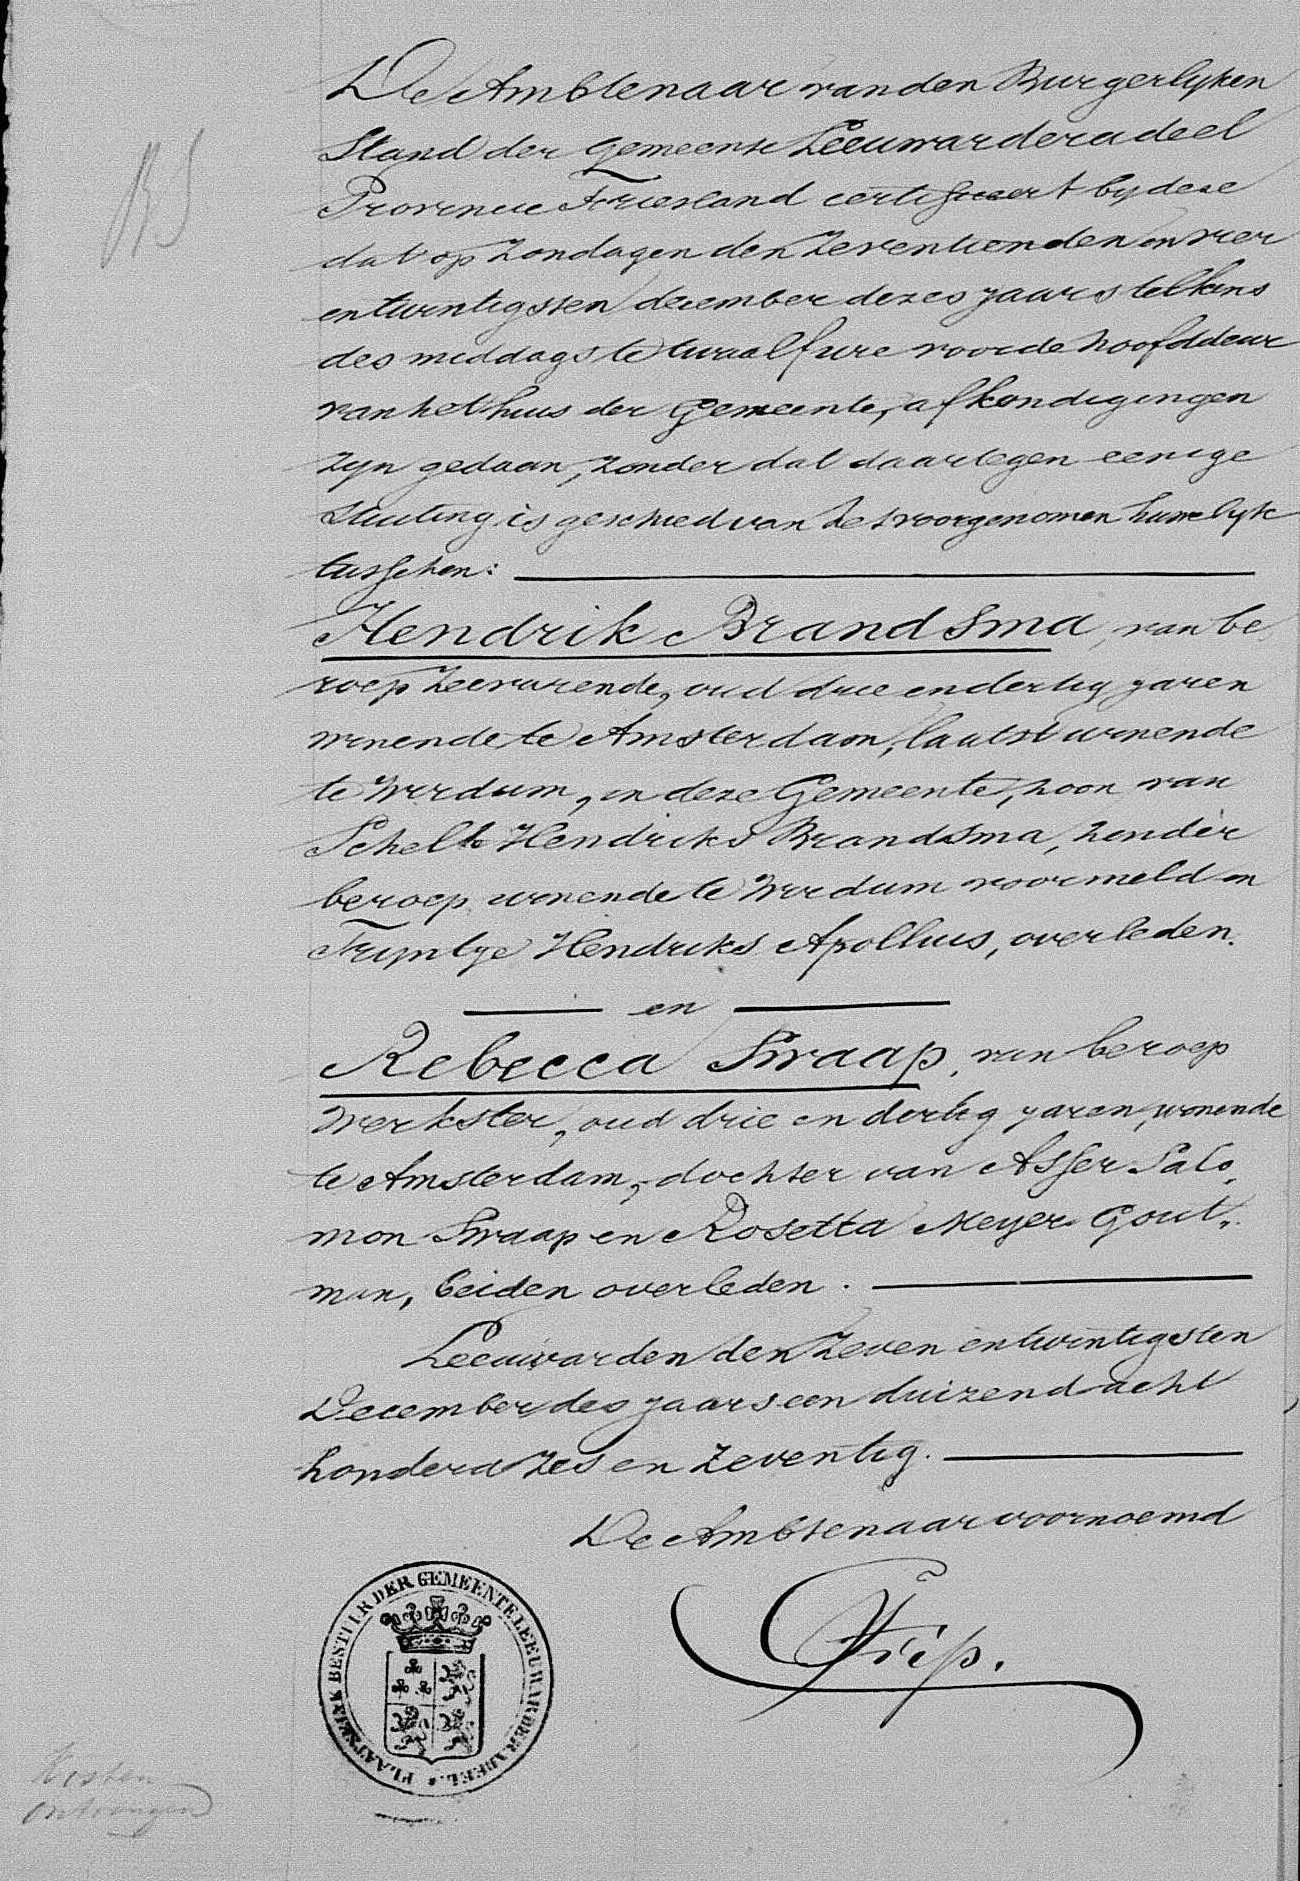 De Ambtenaar van den Burgerlyken
Stand der Gemeente Leeuwarderadeel
Provincie Friesland certificeert by deze
dat op Zondagen den Zeventienden en vier
en twintigsten december dezes jaars telkens
des middags te twaalf ure voor de hoofddeur
van het huis der Gemeente, afkondigingen
zyn gedaan, zonder dat daartegen eenige
stuiting is geschied van het voorgenomen huwelyk
tusschen:
Hendrik Brandsma, van be
roep Zeevarende, oud drie en dertig jaren
wonende te Amsterdam, laatst wonende
te Wirdum, in deze Gemeente, zoon van
Schelte Hendriks Brandsma, zonder
beroep wonende te Wirdum voormeld en
Tryntje Hendriks Apollius, overleden.
en
Rebecca Swaap, van beroep
Werkster, oud drie en dertig jaren, wonende
te Amsterdam, dochter van Asser Salo
mon Swaap en Rosetta Meyer Gout
man, beiden overleden.
Leeuwarden den Zeven en twintigsten
December des jaars een duizend acht
honderd Zes en Zeventig.
De Ambtenaar voornoemd
PLAATSELIJK BESTUUR DER GEMEENTE LEEUWARDERADEEL
Kosten
ontvangen